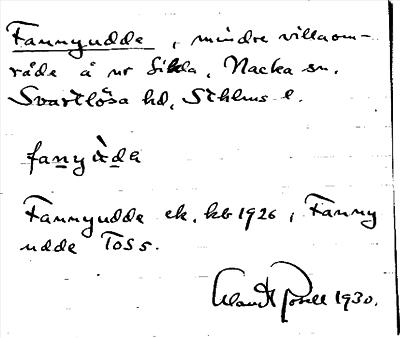 Fannyudde, mindre villaom-
råde å nr Sikla, Nacka sn.
Svartlösa hd, Sthlms l.
fanyùda
Fannyudde ek. kb 1926, Fanny
udde TOS 5.
1930.